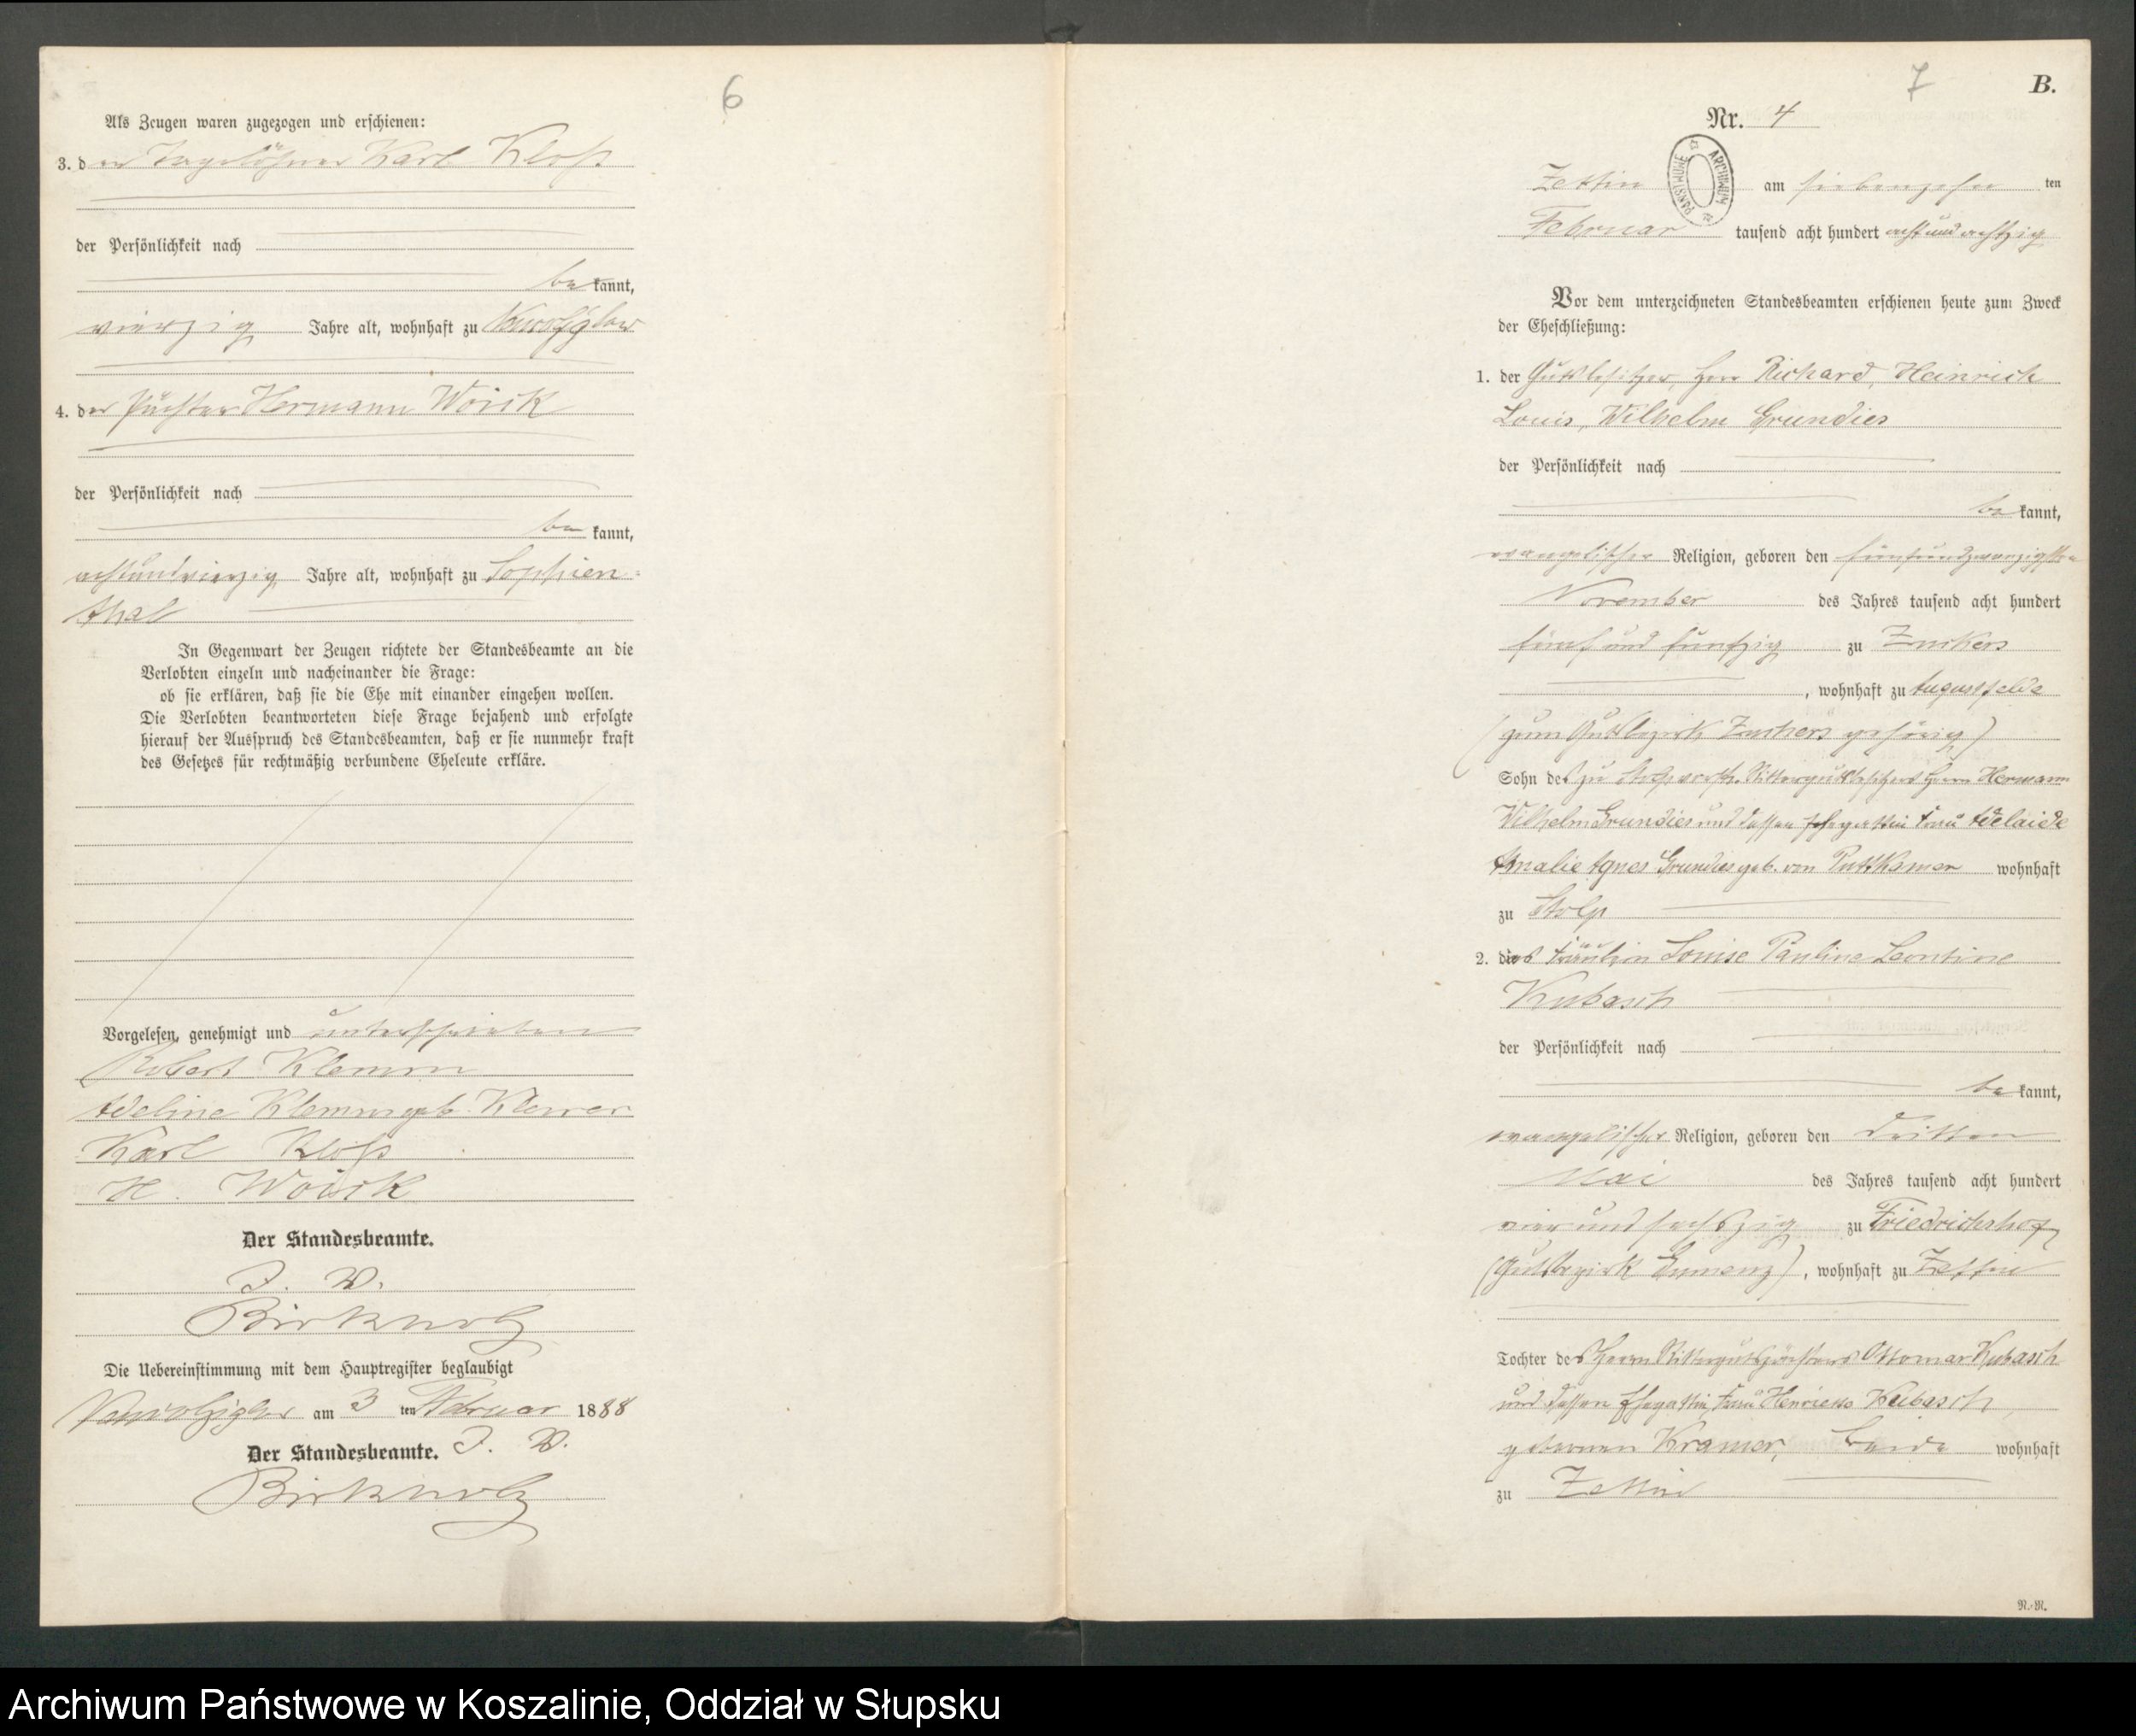 6
Als Zeugen waren zugezogen und erschienen:
3. der Tagelöhner Karl Kloß
der Persönlichkeit nach
bekannt,
vierzig Jahre alt, wohnhaft zu
4. der Pächter Hermann Woick
der Persönlichkeit nach
be kannt,
achtundvierzig Jahre alt, wohnhaft zu Sophien-
thal
In Gegenwart der Zeugen richtete der Standesbeamte an die
Verlobten einzeln und nacheinander die Frage:
ob sie erklären, daß sie die Ehe mit einander eingehen wollen.
Die Verlobten beantworteten diese Frage bejahend und erfolgte
hierauf der Ausspruch des Standesbeamten, daß er sie nunmehr kraft
des Gesetzes für rechtmäßig verbundene Eheleute erkläre.
Vorgelesen, genehmigt und unterschrieben
Robert Klemm
Adeline Klemm geb.
Karl Kloß
H. Woick
Der Standesbeamte.
J. V.
Birkholz
Die Uebereinstimmung mit dem Hauptregister beglaubigt
am 3 ten Februar 1888
Der Standesbeamte. J. V.
Birkholz
7
B.
Nr. 4
ARCHIWUM PAŃSTWOWE
Zettin am siebenzehn ten
Februar tausend acht hundert acht und achtzig
Vor dem unterzeichneten Standesbeamten erschienen heute zum Zweck
der Eheschließung:
1. der Gutsbesitzer, Herr Richard, Heinrich
Louis, Wilhelm Grundies
der Persönlichkeit nach
bekannt,
evangelischer Religion, geboren den fünfundzwanzigsten
November des Jahres tausend acht hundert
fünf und funfzig zu Zuckers
, wohnhaft zu Augustfelde
(zum Gutsbezirk Zuckers gehörig)
Sohn des zu Rittergutsbesitzers Herrn Hermann
Wilhelm Grundies und dessen Ehegattin Frau Adelaide
Amalie Agnes Grundies geb. von Puttkamer wohnhaft
zu Stolp
2. das Fräulein Louise Pauline Leontine
Kubasch
der Persönlichkeit nach
bekannt,
evangelischer Religion, geboren den dritten
Mai des Jahres tausend acht hundert
vier und sechszig zu Friedrichshof
(Gutsbezirk), wohnhaft zu Zettin
Tochter des Herrn Rittergutspächters Ottomar Kubasch
und dessen Ehegattin, Frau Kubasch,
geborenen Kramer, beide wohnhaft
zu Zettin
N.-N.
Archiwum Państwowe w Koszalinie, Oddział w Słupsku